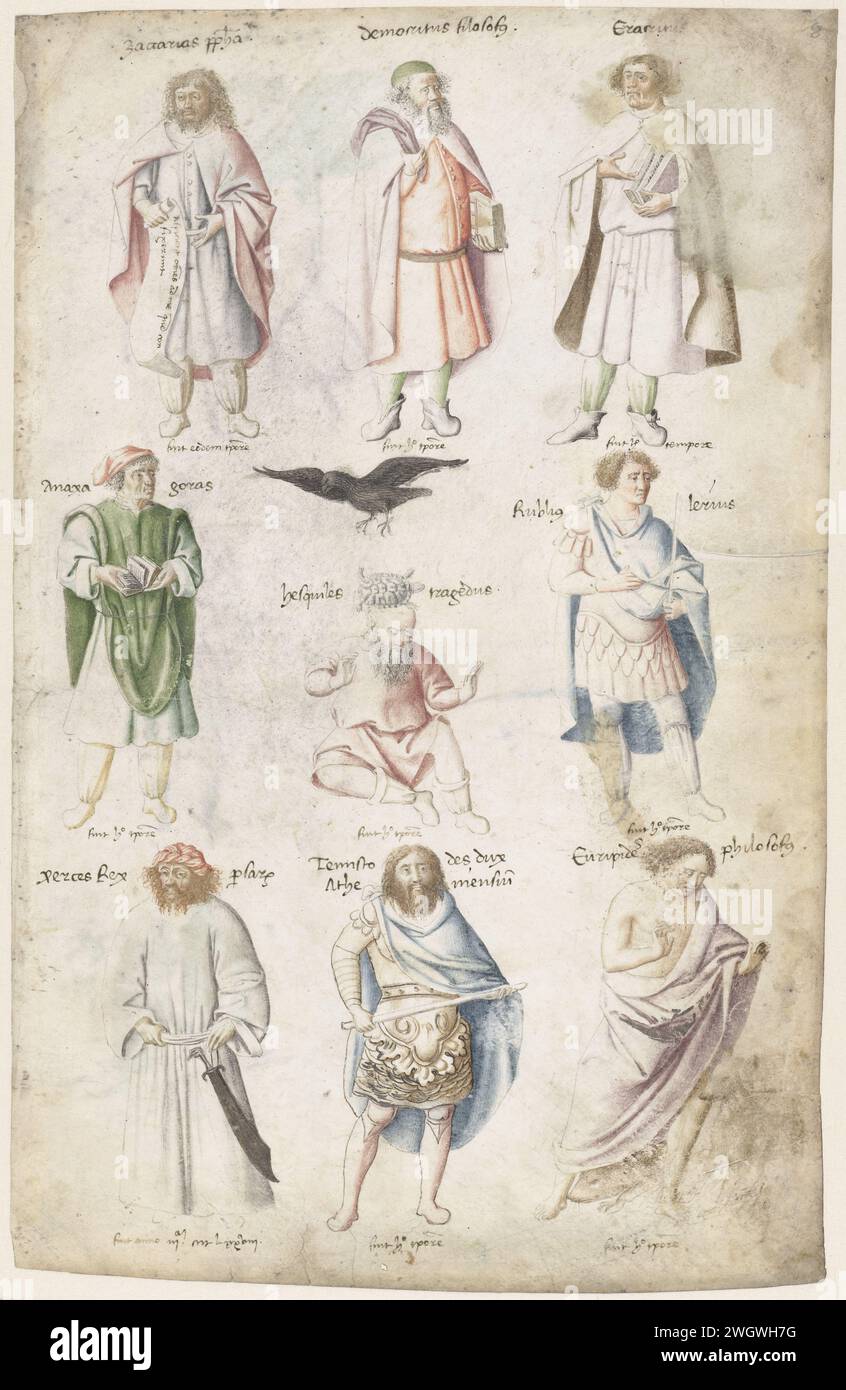 Zaccarias ppha.
Democritus filosofus.
Eracritus
8
fuit eodem tpore
fuit ho tpore
fuit ho tempore
Anaxa goras
Rublius lerius
hesquiles tragedus.
fuit ho tpore
fuit ho tpore
fuit ho tpore
Xerces Rex psarum
Temisto des dux
Athe niensium
Euripides philosofus.
fuit anno
fuit ho tpore
fuit ho tpore
alamy
Image ID: 2WGWH7G
www.alamy.com